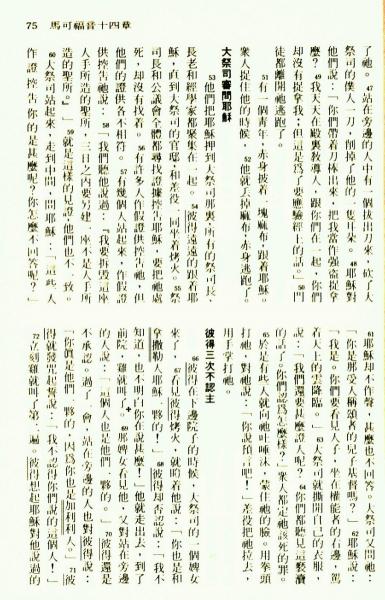 75 馬可福音十四章
了祂。47站在旁邊的人中有一個拔出刀來,砍了大
祭司的僕人一刀,削掉了他的一隻耳朵。48耶穌對
他們說:「你們帶着刀棒出來,把我當作強盜捉拿
麼?49我天天在殿裏教導人,跟你們在一起,你們
却沒有捉拿我。但這是爲了要應驗經上的話。」50門
徒都離開祂逃跑了。
51有一個青年,赤身披着一塊麻布,跟着耶穌。
衆人捉住他的時候,52他就丟掉麻布,赤身逃跑了。
大祭司審問耶穌
53他們把耶穌押到大祭司那裏,所有的祭司長、
長老和經學家都聚集在一起。54彼得遠遠的跟着耶
穌,直到大祭司的官邸,和差役一同坐着烤火。55祭
司長和公議會全體都尋找證據控告耶穌,要把祂處
死,却沒有找着。56有許多人作假證供控告祂,但
他們的證供各不相符。57有幾個人站起來,作假證
供控告祂說:58「我們聽他說過:『我要拆毀這座
人手所造的聖所,三日之內要另建一座不是人手所
造的聖所。』」59就是這樣的見證他們也不一致。
60大祭司站起來,走到中間,問耶穌:「這些人
作證控告你的是甚麼呢?你怎麼不回答呢?」
61耶穌却不作聲,甚麼也不回答。大祭司又問祂:
「你是那受人稱頌者的兒子基督嗎?」62耶穌說:
「我是。你們要看見人子,坐在權能者的右邊,駕
着天上的雲降臨。」63大祭司就撕開自己的衣服,
說:「我們還要甚麼證人呢?64你們都聽見這褻瀆
的話了。你們認爲怎麼樣?」衆人都定祂該死的罪。
65於是有些人就向祂吐唾沫,蒙住祂的臉,用拳頭
打祂,對祂說:「你說預言吧!」差役把祂拉去,
用手掌打祂。
彼得三次不認主
66彼得在下邊院子的時候,大祭司的一個婢女
來了,67看見彼得烤火,就盯着他說:「你也是和
拿撒勒人耶穌一夥的!」68彼得却否認說:「我不
知道,也不明白你在說甚麼!」他就走出去,到了
前院,雞就叫了。69那婢女看見他,又對站在旁邊
的人說:「這個人也是他們一夥的。」70彼得還是
不承認。過了一會,站在旁邊的人也對彼得說:
「你眞是他們一夥的,因爲你也是加利利人。」71彼
得就發咒起誓說:「我不認得你們說的這個人!」
72立刻雞就叫了第二遍。彼得想起耶穌對他說過的